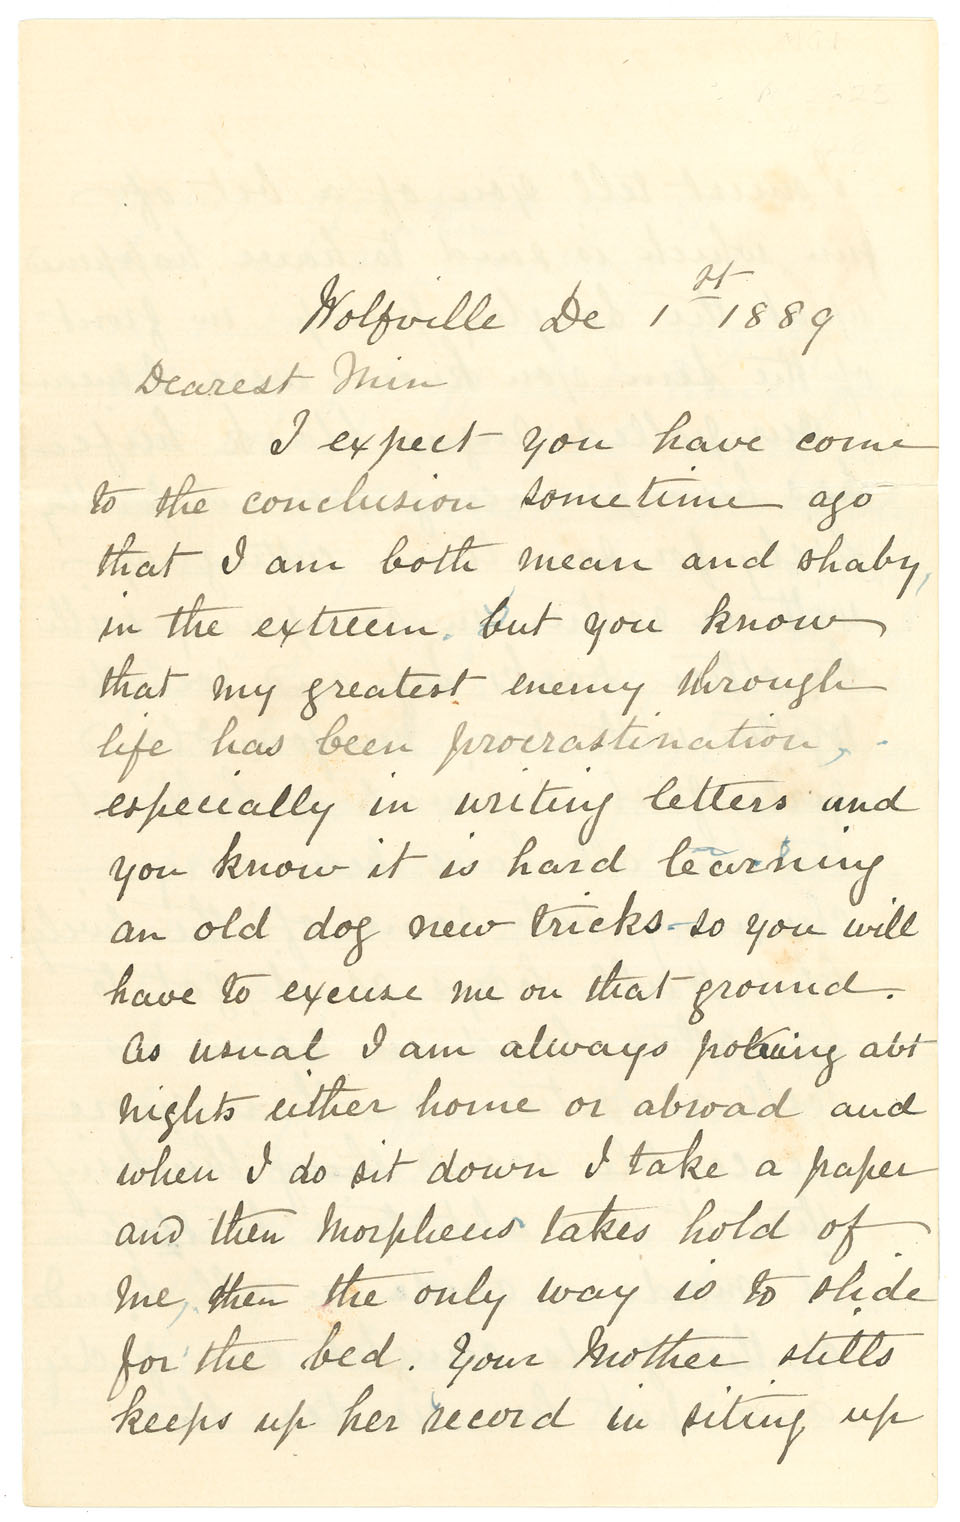 Wolfville De 1st 1889
Dearest Min
I expect you have come
to the conclusion sometime ago
that I am both mean and shaby,
in the extreem. but you know
that my greatest enemy through
life has been procrastination,
especially in writing letters and
you know it is hard learning
an old dog new tricks - so you will
have to excuse me on that ground.
As usual I am always abt
nights either home or abroad and
when I do sit down I take a paper
and then Morpheus takes hold of
me, then the only way is to slide
for the bed. Your Mother stills
keeps up her record in siting up